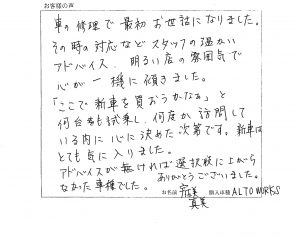 お客様の声
車の修理で最初お世話になりました。
その時の対応などスタッフの温かい
アドバイス、明るい店の雰囲気で
心が一機に傾きました。
「ここで新車を買おうかなぁ」と
何台も試乗し、何度か訪問して
いる内に心に決めた次第です。新車は
とても気に入りました。
アドバイスが無ければ選択肢に上がら
なかった車種でした。ありがとうございました。
お名前 真美 購入車種 ALTO WORKS